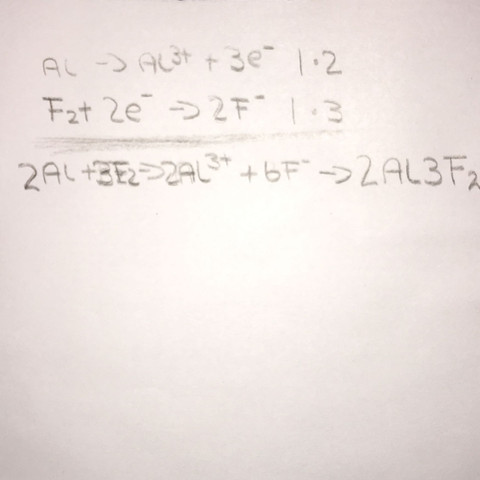 AL -> AL³⁺ + 3e⁻ |·2
F₂+ 2e⁻ -> 2F⁻ |·3
2AL+3F₂->2AL³⁺ +6F⁻ ->2AL3F₂